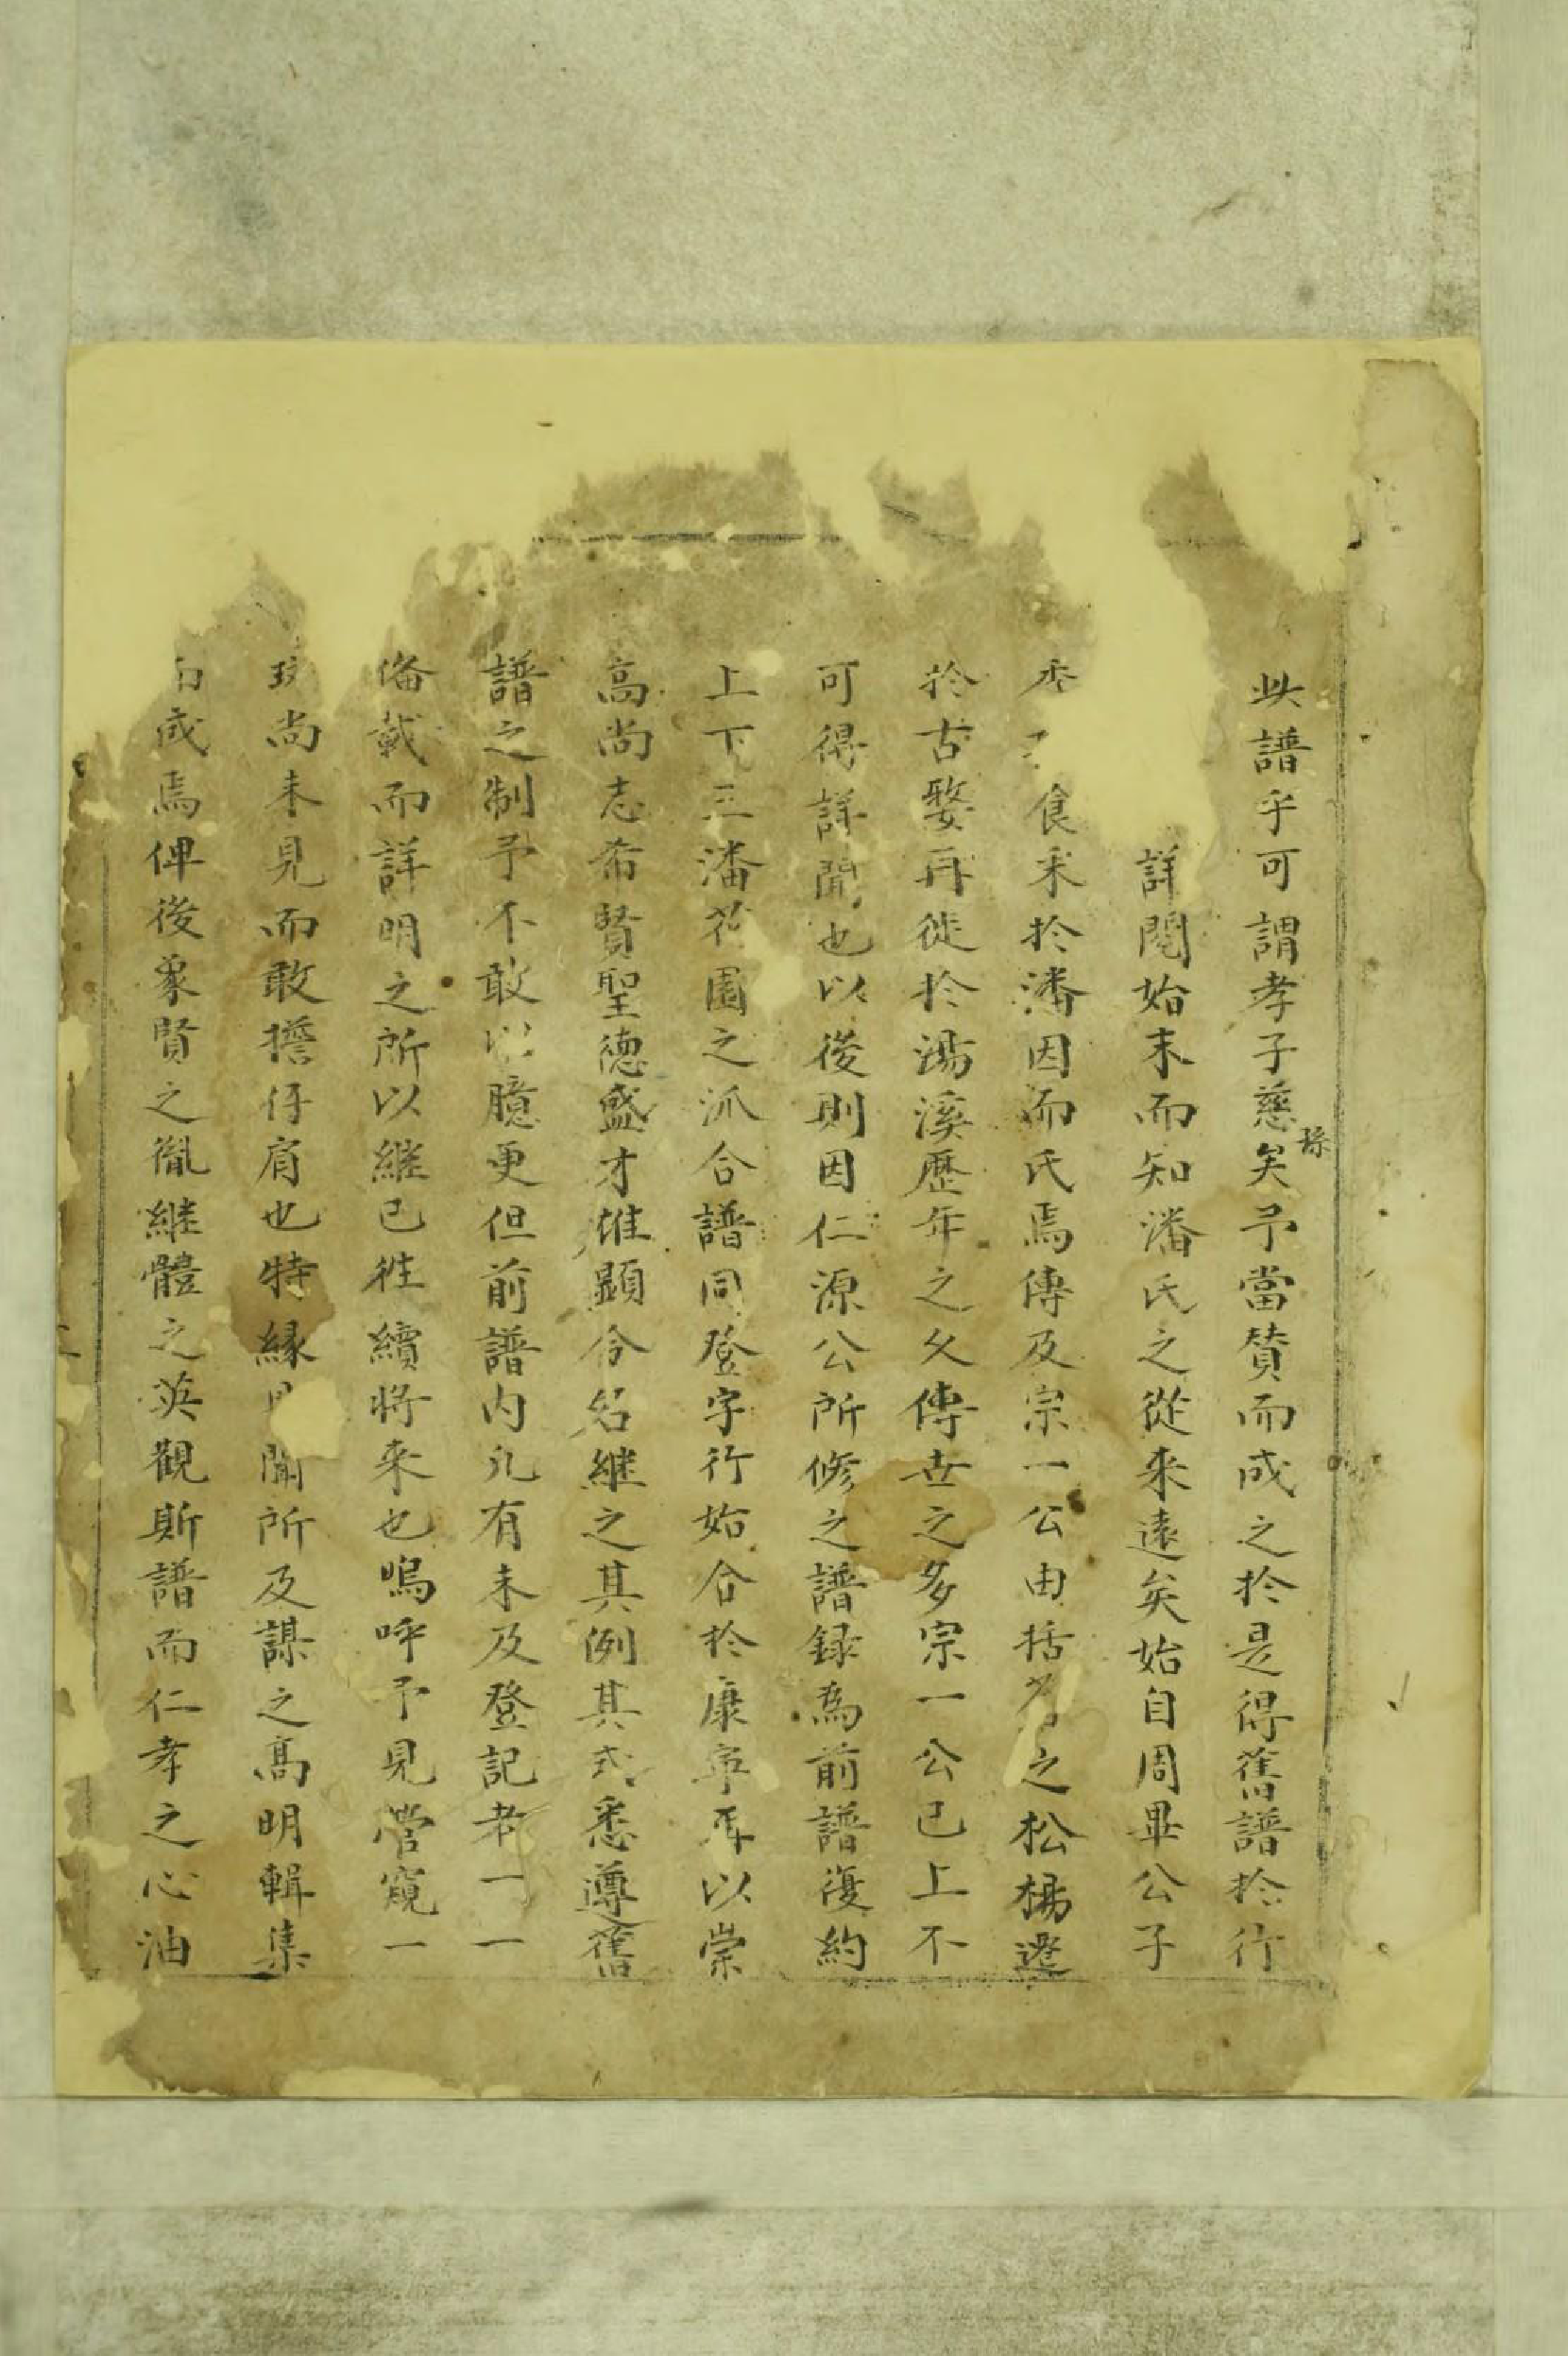 此譜乎可謂孝子慈孫矣予當賛而成之扵是得舊譜扵行
詳閱始末而知潘氏之從來遠矣始自周畢公子
季食采扵潘因而氏焉傳及宗一公由括之松楊遷
扵古婺再徙扵湯溪歷年之久傳世之多宗一公已上不
可得詳聞也以後則因仁源公所修之譜録為前譜復約
上下三潘花園之派合譜同登字行始合扵康寧再以崇
高尚志希賢聖德盛才雄顯令名継之其例其式悉遵舊
譜之制予不敢以臆更但前譜内凡有未及登記者一一
俻載而詳明之所以継已徃續将来也嗚呼予見管窺一
尚未見而敢擔仔肩也特緣聞所及謀之高明輯集
而成焉俾後象賢之胤継體之英觀斯譜而仁孝之心油